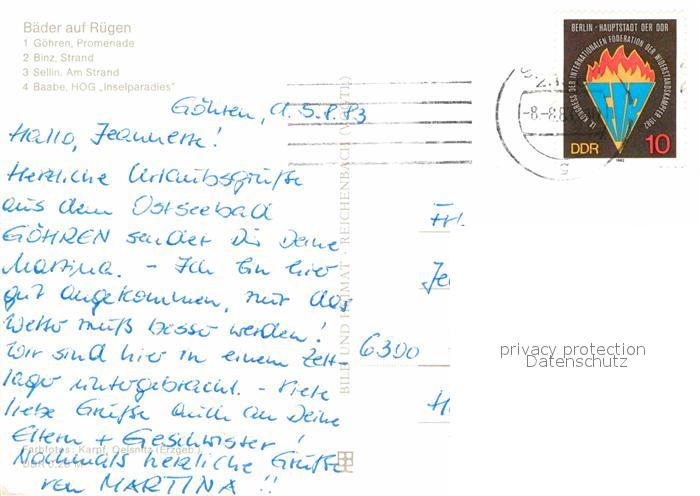 Bäder auf Rügen
1 Göhren, Promenade
2 Binz, Strand
3 Sellin, Am Strand
4 Baabe, HOG „Inselparadies"
Göhren, d. 5.8.83
Hallo, Jeannette!
Herzliche Urlaubsgrüße
aus dem Ostseebad
GÖHREN sendet Dir Deine
Martina. - Ich bin hier
gut angekommen, nur das
Wetter muß besser werden!
Wir sind hier in einem Zelt-
lager untergebracht. - Viele
liebe Grüße auch an Deine
Eltern + Geschwister!
Nochmals herzliche Grüße
von MARTINA !!
Farbfotos: Karpf, Oelsnitz (Erzgeb.)
BILD UND HEIMAT · REICHENBACH (VOGTL)
BERLIN - HAUPTSTADT DER DDR
IX. KONGRESS DER INTERNATIONALEN FÖDERATION DER WIDERSTANDSKÄMPFER 1982
FIR
DDR 10
1982
-8.-8.83
Frl.
Je
6300
H
privacy protection
Datenschutz